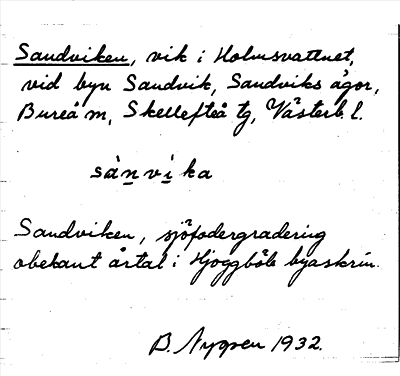 Sandviken, vik i Holmsvattnet,
vid byn Sandvik, Sandviks ägor,
Bureå m, Skellefteå tg, Västerb. l.
sànvìka
Sandviken, sjöfodergradering
obekant årtal i Hjoggböle byaskrin.
B. Nygren 1932.